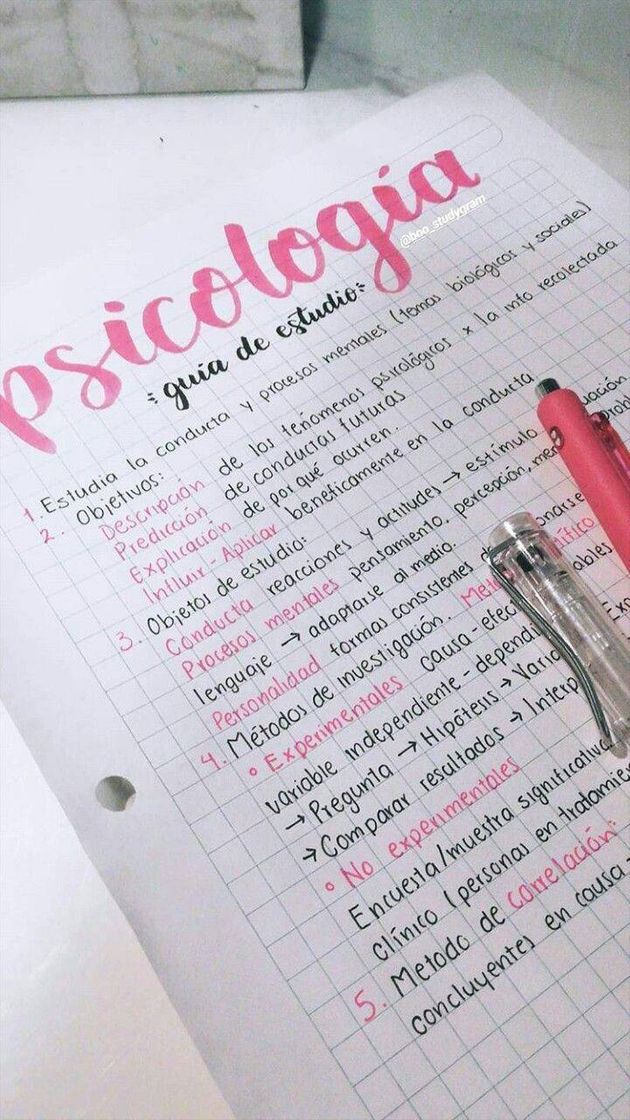 psicología
@boo_studygram
guía de estudio
1. Estudia la conducta y procesos mentales (temas biológicos y sociales)
2. Objetivos:
Descripción de los fenómenos psicológicos x la info recolectada
Predicción de conductas futuras
Explicación de por qué ocurren.
Influir-Aplicar benéficamente en la conducta
3. Objetos de estudio:
Conducta reacciones y actitudes → estímulo
Procesos mentales pensamiento, percepción,
lenguaje → adaptarse al medio.
Personalidad formas consistentes
4. Métodos de investigación.
° Experimentales causa-efec
variable independiente-dependi
→ Pregunta → Hipótesis →
→ Comparar resultados →
° No experimentales
Encuesta/muestra significativa
clínico (personas en
5. Metodo de correlación:
concluyentes en causa